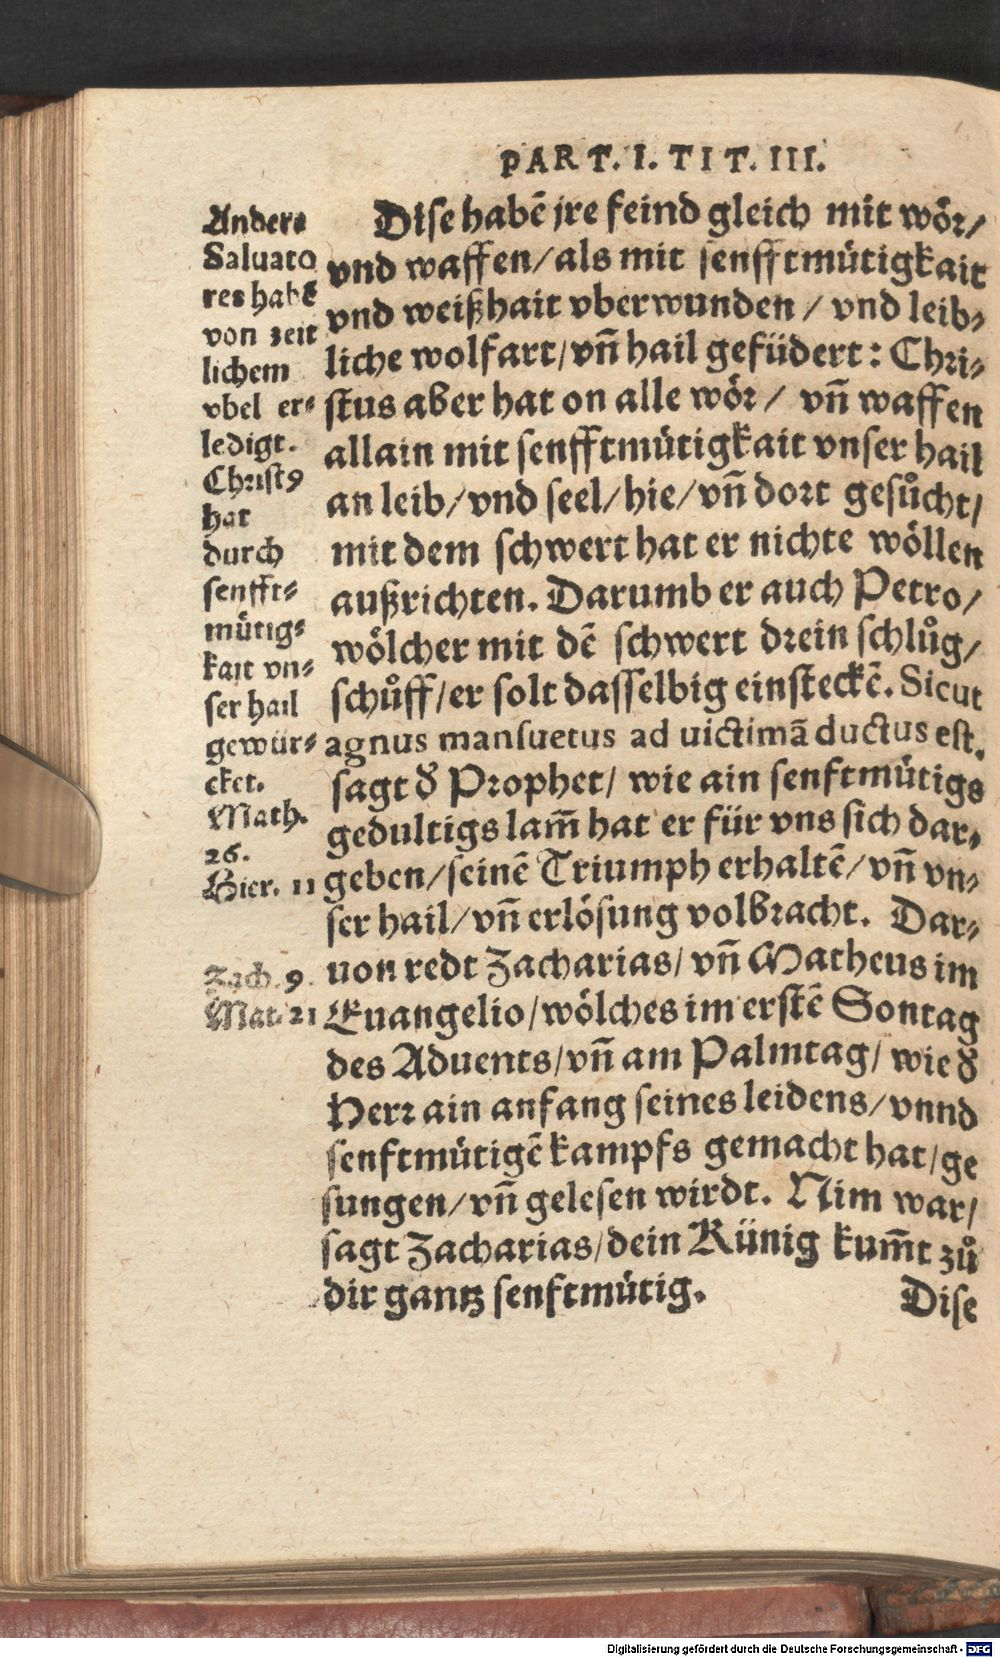 PART. I. TIT. III.
Andere
Saluato
res habē
von zeit
lichem
vbel er⸗
ledigt.
Christ9
hat
durch
senfft⸗
mütig⸗
kait vn⸗
ser hail
gewür⸗
cket.
Math.
26.
Hier. 11
Zach. 9.
Mat. 21
Dise habē jre feind gleich mit wör/
vnd waffen/als mit senfftmütigkait
vnd weißhait vberwunden / vnd leib⸗
liche wolfart/vñ hail gefüdert: Chri⸗
stus aber hat on alle wör / vñ waffen
allain mit senfftmütigkait vnser hail
an leib/vnd seel/hie/vñ dort gesůcht/
mit dem schwert hat er nichte wöllen
außrichten. Darumb er auch Petro/
wölcher mit dē schwert drein schlůg/
schůff/er solt dasselbig einsteckē. Sicut
agnus mansuetus ad uictimā ductus est.
sagt d̕ Prophet/ wie ain senftmütigs
gedultigs lam̄ hat er für vns sich dar⸗
geben/seinē Triumph erhaltē/vñ vn⸗
ser hail/vñ erlösung volbracht. Dar⸗
uon redt Zacharias/ vñ Matheus im
Euangelio/wölches im erstē Sontag
des Aduents/vñ am Palmtag/ wie d̕
Herr ain anfang seines leidens/vnnd
senftmütigē kampfs gemacht hat/ge
sungen/vñ gelesen wirdt. Nim war/
sagt Zacharias/dein Künig kum̄t zů
dir gantz senftmütig.
Dise
Digitalisierung gefördert durch die Deutsche Forschungsgemeinschaft - DFG